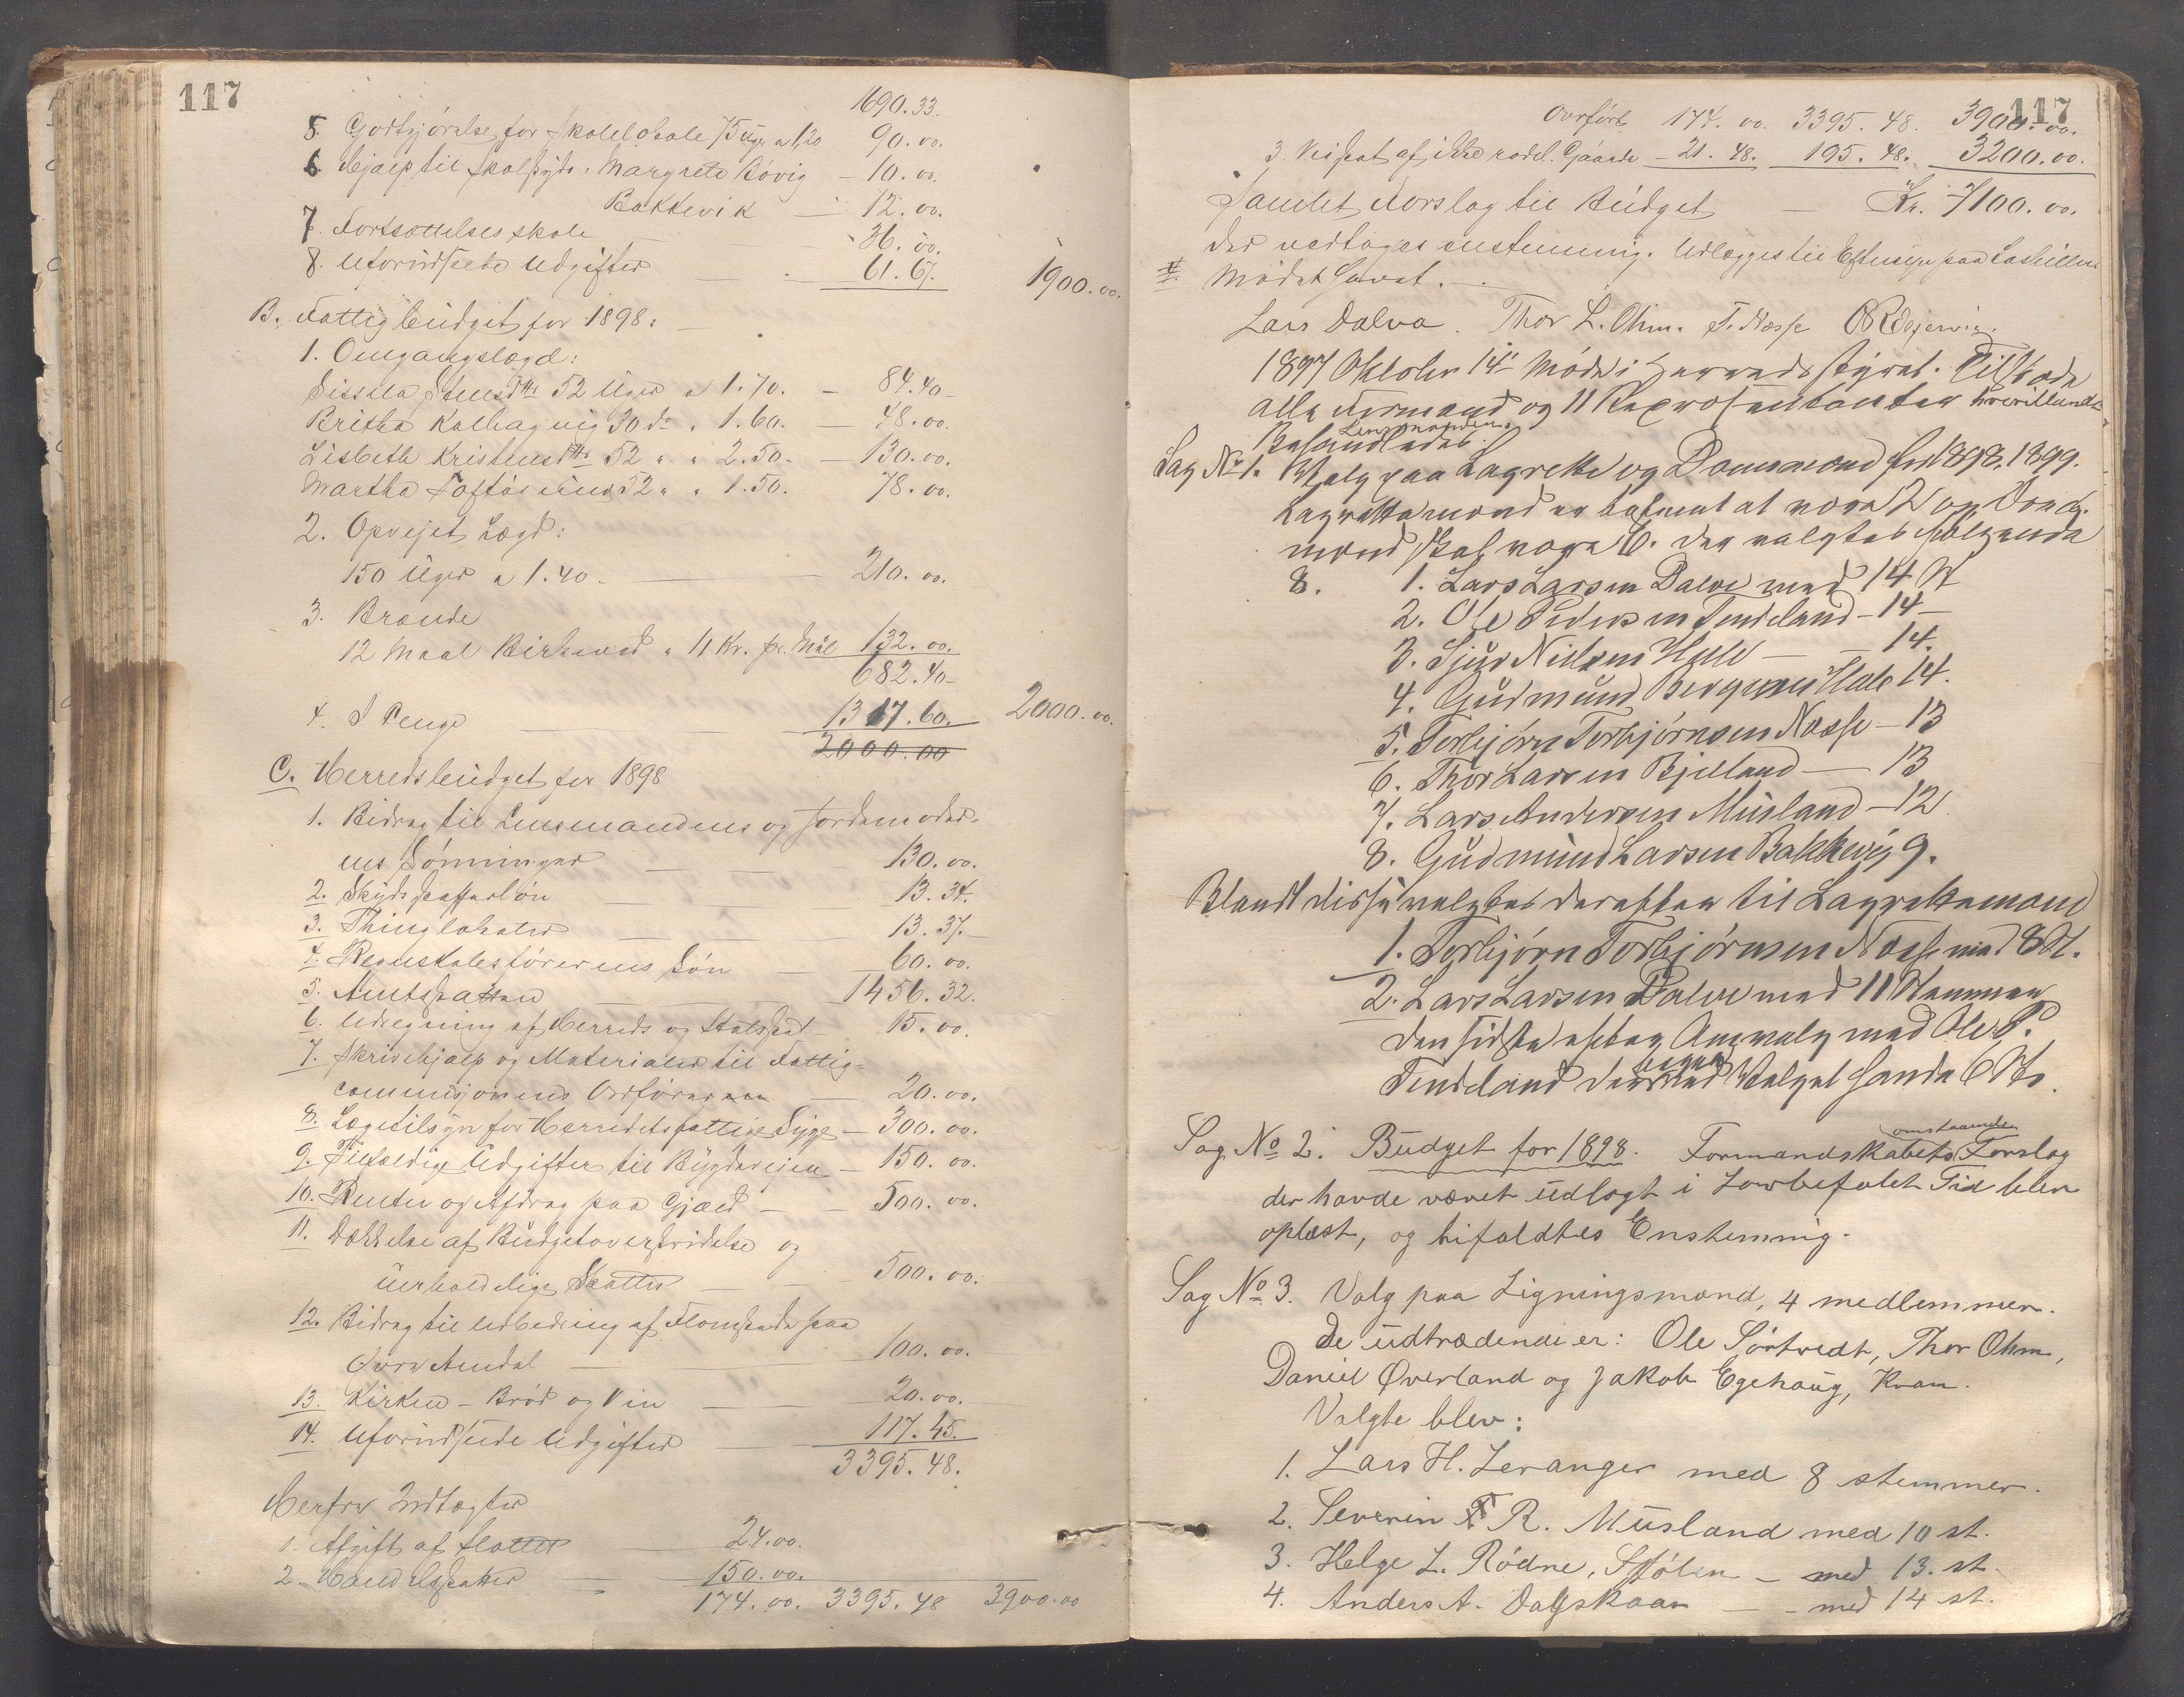 117
1690.33.
5. Godtgjörelse for Skolelokale 75 Ug. a 1,20 90.00.
6. Hjælp til Skolskyds: Margrete Bövig – 10.00.
Bakkevik – 12.00.
7. Fortsættelsesskole 36.00.
8. Uforudseede Udgifter 61.67. 1900.00.
B. Fattigbudget for 1898:
1. Omgangslægd:
Sissela 52 Uger a 1.70. – 84.40
Britha Kalhagvig 30 do " 1.60. – 48.00.
Lisbeth Kristensdtr 52 " " 2.50. – 130.00.
Martha 52 " " 1.50. 78.00.
2. Opvejet Lægd:
150 Uger a 1.40 – 210.00.
3. Brænde
12 Maal Birkeved a 11 Kr. pr. Mål 132.00.
682.40
4. I Penge 1317.60. 2000.00.
2000.00
C. Herredsbudget for 1898
1. Bidrag til Lensmandens og Jordmoder-
ens Lönninger 130.00.
2. Skydsskafferlön 13.34.
3. Thinglokaler 13.37.
4. Regnskabsförerens Lön 60.00.
5. Amtsskatten 1456.32.
6. Udregning af Herreds og Skoleskat – 15.00.
7. Skrivehjælp og Materialer til Fattig-
commisjonens Ordförer – 20.00.
8. Lægetilsyn for Herredets fattige Syge – 300.00.
9. Tilfældige Udgifter til Bygdeveien – 150.00.
10. Renter og Afdrag paa Gjæld – 500.00.
11. Dækkelse af Budgetoverskridelse og
uerholdelige Skatter – 500.00.
12. Bidrag til Udbedring af Flomskade paa
Övre Amdal – 100.00.
13. Kirken – Bröd og Vin – 20.00.
14. Uforudseede Udgifter – 117.45.
3395.48.
Herfra Indtægter
1. Afgift af 24.00.
2. Handelsskatter 150.00.
174.00. 3395.48 3900.00
117
Overfört 174.00. 3395.48. 3900.00.
3. Veiskat af ikke rodel. Gaarde – 21.48. 195.48. 3200.00.
Samlet Forslag til Budget – Kr. 7100.00.
der vedtages enstemmig. Udlægges til Eftersyn paa
Mödet hævet.
Lars Dalva. Thor L. Ohm. T. Næsse
1897 Oktober 14de Möde i Herredsstyret. Tilstede
alle Formænd og 11 Repræsentanter
Lensmanden.
Behandledes:
Sag No 1. Valg paa Lagrette og Domsmænd for 1898, 1899.
Lagrettemænd er bestemt at være 2 og Doms-
mænd skal være 6. der valgtes fölgende
8. 1. Lars Larsen Dalve med 14 St
2. Ole Pedersen Tendeland – 14 –
3. Sjur Nielsen Hele – 14.
4. Gudmund Bergesen Hele 14.
5. Torbjörn Torbjörnsen Næsse – 13
6. Thor Larsen Bjelland – 13
7. Lars Andersen Musland – 12
8. Gudmund Larsen Bakkevig 9.
Blandt disse valgtes derefter til Lagrettemænd
1. Torbjörn Torbjörnsen Næsse med 8 St.
2. Lars Larsen Dalve med 11 Stemmer
den sidste efter Omvalg med Ole P.
Tendeland der ved Valget havde 6 St.
Sag No 2. Budget for 1898. Formandskabets omstaaende Forslag
der havde været udlagt i Lovbefalet Tid blev
oplæst, og bifaldtes Enstemmig.
Sag No 3. Valg paa Ligningsmænd, 4 medlemmer.
De udtrædende er: Ole Sörtvedt, Thor Ohm,
Daniel Øverland og Jakob Egehaug, Kvam.
Valgte blev:
1. Lars H. Levanger med 8 stemmer.
2. Severin R. Musland med 10 st.
3. Helge L. Rödne, Stölen – med 13. st.
4. Anders A. Dagskaar – med 14 st.